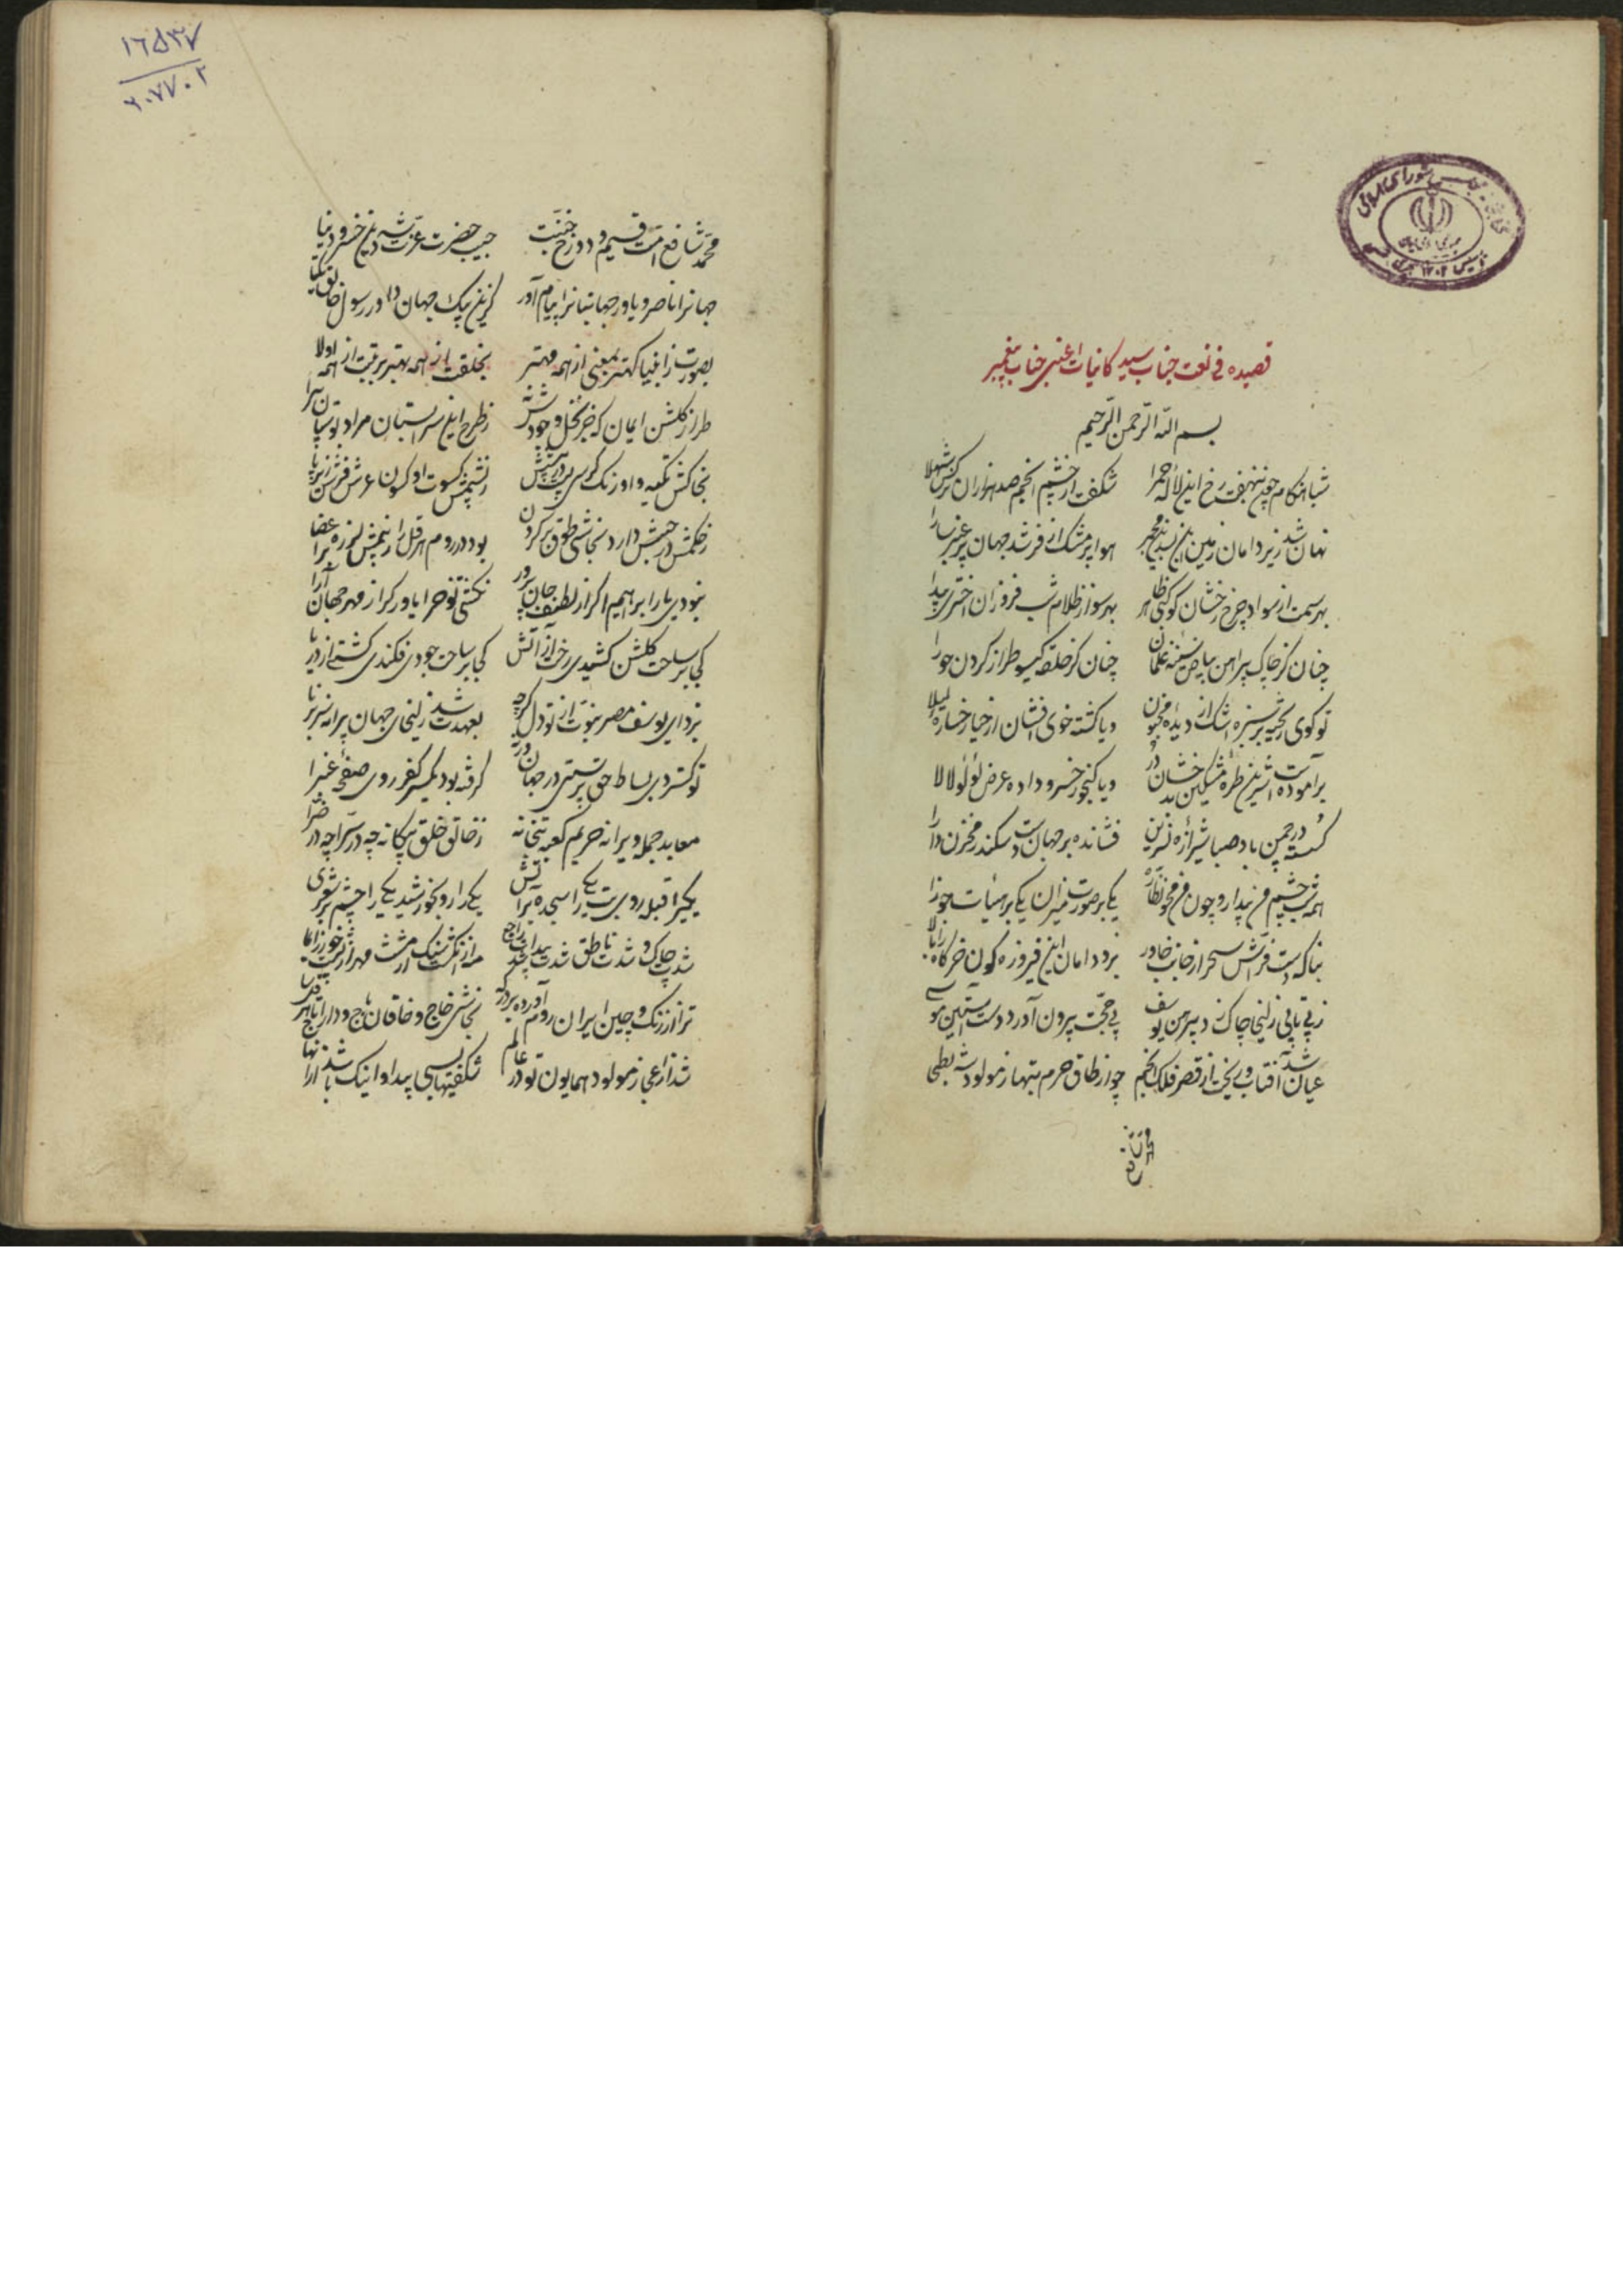 قصیده فی نعت جناب سید کاینات اعنی جناب پیغمبر
بسم الله الرحمن الرحیم
شباهنگام چون بنهفت رخ این لاله حمرا شکفت از چشم انجم صد هزاران نرگس شهلا
نهان شد زیر دامان زمین این سیمین مجمر هوا پر مشک اذفر شد جهان پر عنبر سارا
بهر سمت از سواد چرخ رخشان کوکبی ظاهر بهر سو از ظلام شب فروزان اختری پیدا
چنان کز چاک پیراهن بیاض سینه غلمان چنان کز حلقه گیسو طراز گردن حورا
تو گوی ریخته بر سبزه اشک از دیده مجنون و یا گشته خوی افشان از حیا رخساره لیلا
برآموده است شیرین طره مشکین بدر خشان و یا گنجور خسرو داده عرض لؤلؤ لالا
گسسته در چمن باد صبا شیرازه نسرین فشانده بر جهان دست سکندر مخزن دارا
همه شب چشم من بیدار و چون من محو نظاره یکی بر صورت میزان یکی بر هیأت جوزا
بناگه دست فراش سحر از جانب خاور بزد دامان این فیروزه گون خرگاه را بالا
ز بی تابی زلیخا چاک زد پیراهن یوسف پی حجت برون آورد دست از آستین موسی
عیان شد آفتاب و ریخت از قصر فلک انجم چو از طاق حرم بتها ز مولود شه بطحی
محمد شافع امت قسیم دوزخ و جنت حبیب حضرت عزت شه دین خسرو دنیا
جهانرا ناصر و یاور جهانبانرا پیام آور گزین پیک جهان داور رسول خالق یکتا
بصورت ز انبیا کهتر بمعنی از همه مهتر بخلقت از همه بهتر برتبت از همه اولا
طراز گلشن ایمان که جز نخل وجودش ز طرح این سرابستان مراد بوستان پیرا
بخاکش تکیه و اورنگ کرسی پشمینش کسوت او کسون عرش فرش زیر پا
ز حکمش در حبش دارد نجاشی طوق بر گردن بود در روم هرقل را ز بیمش لرزه بر اعضا
نبودی یار ابراهیم اگر از لطف جان پرور نگشتی نوح را یاور گر از مهر جهان آرا
کی بر ساحت گلشن کشیدی رخت از آتش کی بر ساحت جودی فکندی کشتی از دریا
نبرد ای یوسف مصر نبوت از تو دل گرچه بعهدت شد زلیخای جهان پیرانه سر برنا
تو گستردی بساط حق پرستی در جهان ورنه گرفته بود یکسر کفر روی صفحه غبرا
معابد جمله ویرانه حریم کعبه بتخانه ز خالق خلق بیگانه چه در سرا چه در ضرا
یکی را قبله روی بت یکی را سجده بر آتش یکی را رو بخورشید یکی را چشم بر شعری
ترا از زنگ و چین ایران و روم آورده بر درگه نجاشی خاج و خاقان باج و دارا تاج
شد از اعجاز مولود همایون تو در عالم شگفتیها بسی پیدا و اینک باشد از آنها
۱۶۵۳۷
۲۰۷۷۰۲